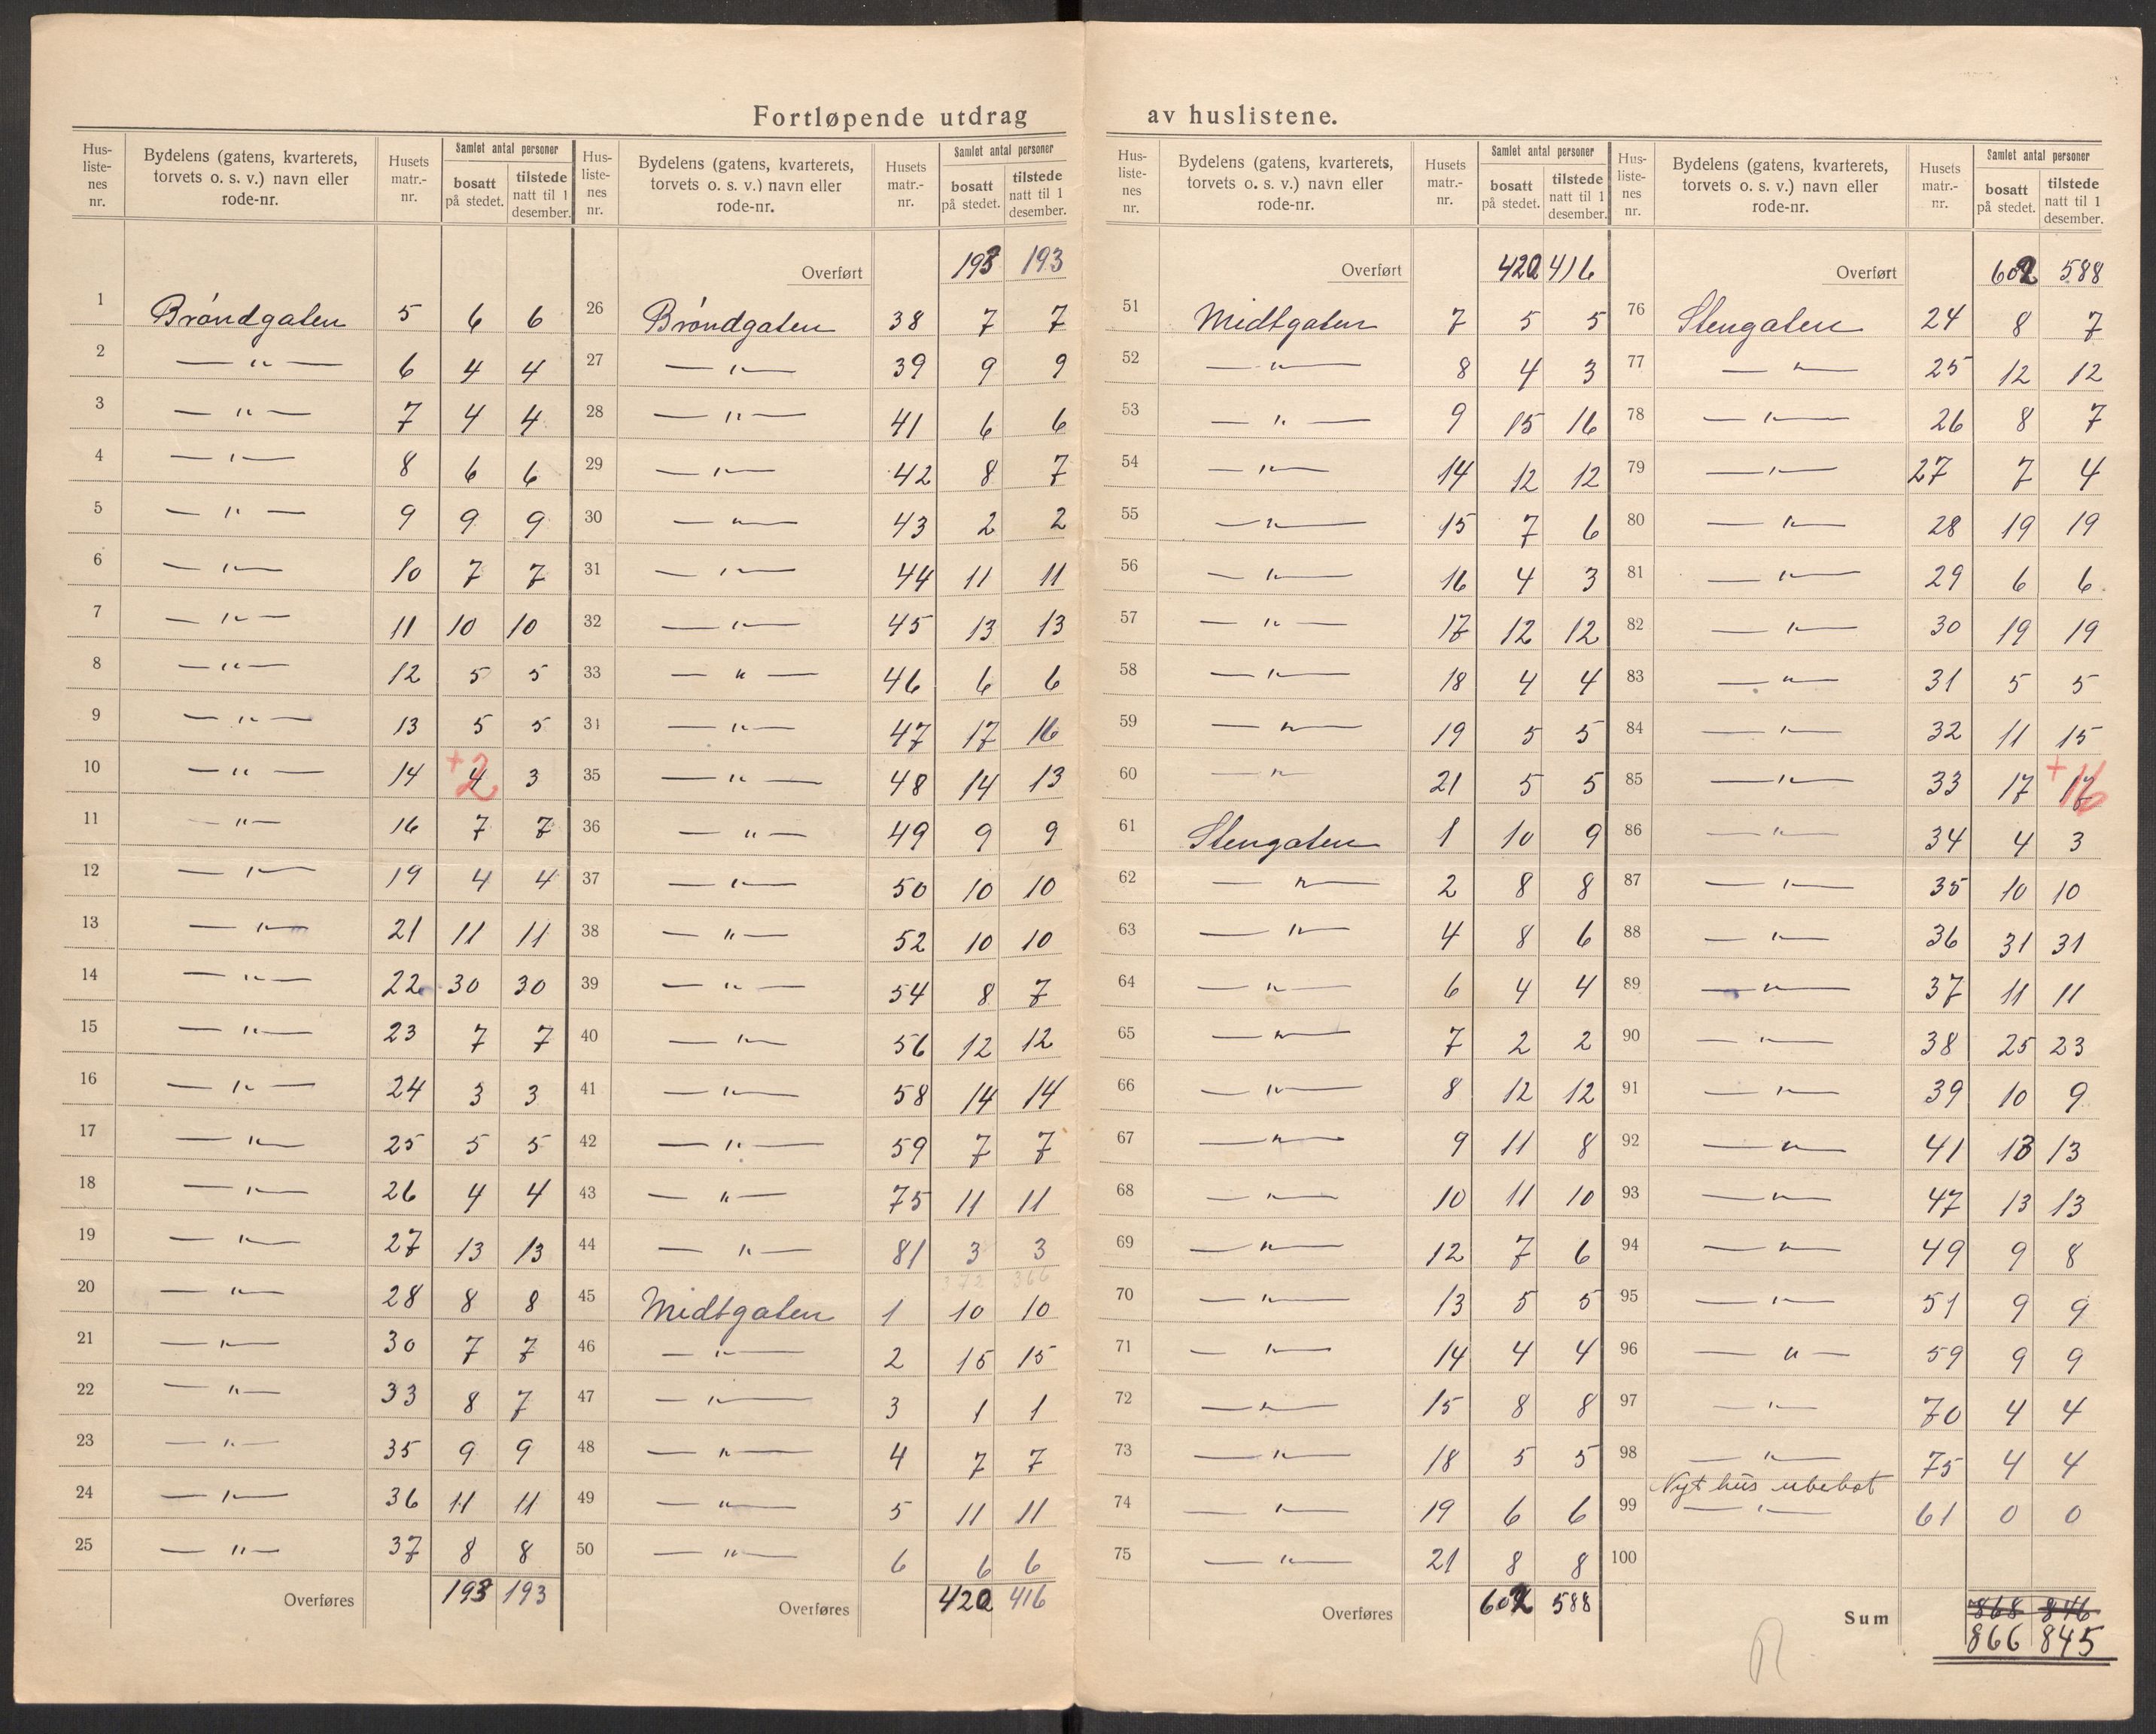 Fortløpende utdrag av huslistene.
Hus-liste-nes nr. | Bydelens (gatens, kvarterets, torvets o. s. v.) navn eller rode-nr. | Husets matr.-nr. | Samlet antal personer bosatt på stedet. | tilstede natt til 1 desember.
1 Brøndgaten 5 6 6
2 — " — 6 4 4
3 — " — 7 4 4
4 — " — 8 6 6
5 — " — 9 9 9
6 — " — 10 7 7
7 — " — 11 10 10
8 — " — 12 5 5
9 — " — 13 5 5
10 — " — 14 4 +2 3
11 — " — 16 7 7
12 — " — 19 4 4
13 — " — 21 11 11
14 — " — 22 30 30
15 — " — 23 7 7
16 — " — 24 3 3
17 — " — 25 5 5
18 — " — 26 4 4
19 — " — 27 13 13
20 — " — 28 8 8
21 — " — 30 7 7
22 — " — 33 8 7
23 — " — 35 9 9
24 — " — 36 11 11
25 — " — 37 8 8
Overføres 193 193
Hus-liste-nes nr. | Bydelens (gatens, kvarterets, torvets o. s. v.) navn eller rode-nr. | Husets matr.-nr. | Samlet antal personer bosatt på stedet. | tilstede natt til 1 desember.
Overført 193 193
26 Brøndgaten 38 7 7
27 — " — 39 9 9
28 — " — 41 6 6
29 — " — 42 8 7
30 — " — 43 2 2
31 — " — 44 11 11
32 — " — 45 13 13
33 — " — 46 6 6
34 — " — 47 17 16
35 — " — 48 14 13
36 — " — 49 9 9
37 — " — 50 10 10
38 — " — 52 10 10
39 — " — 54 8 7
40 — " — 56 12 12
41 — " — 58 14 14
42 — " — 59 7 7
43 — " — 75 11 11
44 — " — 81 3 3
372 366
45 Midtgaten 1 10 10
46 — " — 2 15 15
47 — " — 3 1 1
48 — " — 4 7 7
49 — " — 5 11 11
50 — " — 6 6 6
Overføres 420 416
Hus-liste-nes nr. | Bydelens (gatens, kvarterets, torvets o. s. v.) navn eller rode-nr. | Husets matr.-nr. | Samlet antal personer bosatt på stedet. | tilstede natt til 1 desember.
Overført 420 416
51 Midtgaten 7 5 5
52 — " — 8 4 3
53 — " — 9 15 16
54 — " — 14 12 12
55 — " — 15 7 6
56 — " — 16 4 3
57 — " — 17 12 12
58 — " — 18 4 4
59 — " — 19 5 5
60 — " — 21 5 5
61 Stengaten 1 10 9
62 — " — 2 8 8
63 — " — 4 8 6
64 — " — 6 4 4
65 — " — 7 2 2
66 — " — 8 12 12
67 — " — 9 11 8
68 — " — 10 11 10
69 — " — 12 7 6
70 — " — 13 5 5
71 — " — 14 4 4
72 — " — 15 8 8
73 — " — 18 5 5
74 — " — 19 6 6
75 — " — 21 8 8
Overføres 602 588
Hus-liste-nes nr. | Bydelens (gatens, kvarterets, torvets o. s. v.) navn eller rode-nr. | Husets matr.-nr. | Samlet antal personer bosatt på stedet. | tilstede natt til 1 desember.
Overført 602 588
76 Stengaten 24 8 7
77 — " — 25 12 12
78 — " — 26 8 7
79 — " — 27 7 4
80 — " — 28 19 19
81 — " — 29 6 6
82 — " — 30 19 19
83 — " — 31 5 5
84 — " — 32 11 15
85 — " — 33 17 17 +16
86 — " — 34 4 3
87 — " — 35 10 10
88 — " — 36 31 31
89 — " — 37 11 11
90 — " — 38 25 23
91 — " — 39 10 9
92 — " — 41 13 13
93 — " — 47 13 13
94 — " — 49 9 8
95 — " — 51 9 9
96 — " — 59 9 9
97 — " — 70 4 4
98 — " — 75 4 4
Nyt hus ubebot
99 — " — 61 0 0
100
Sum 868 846
866 845